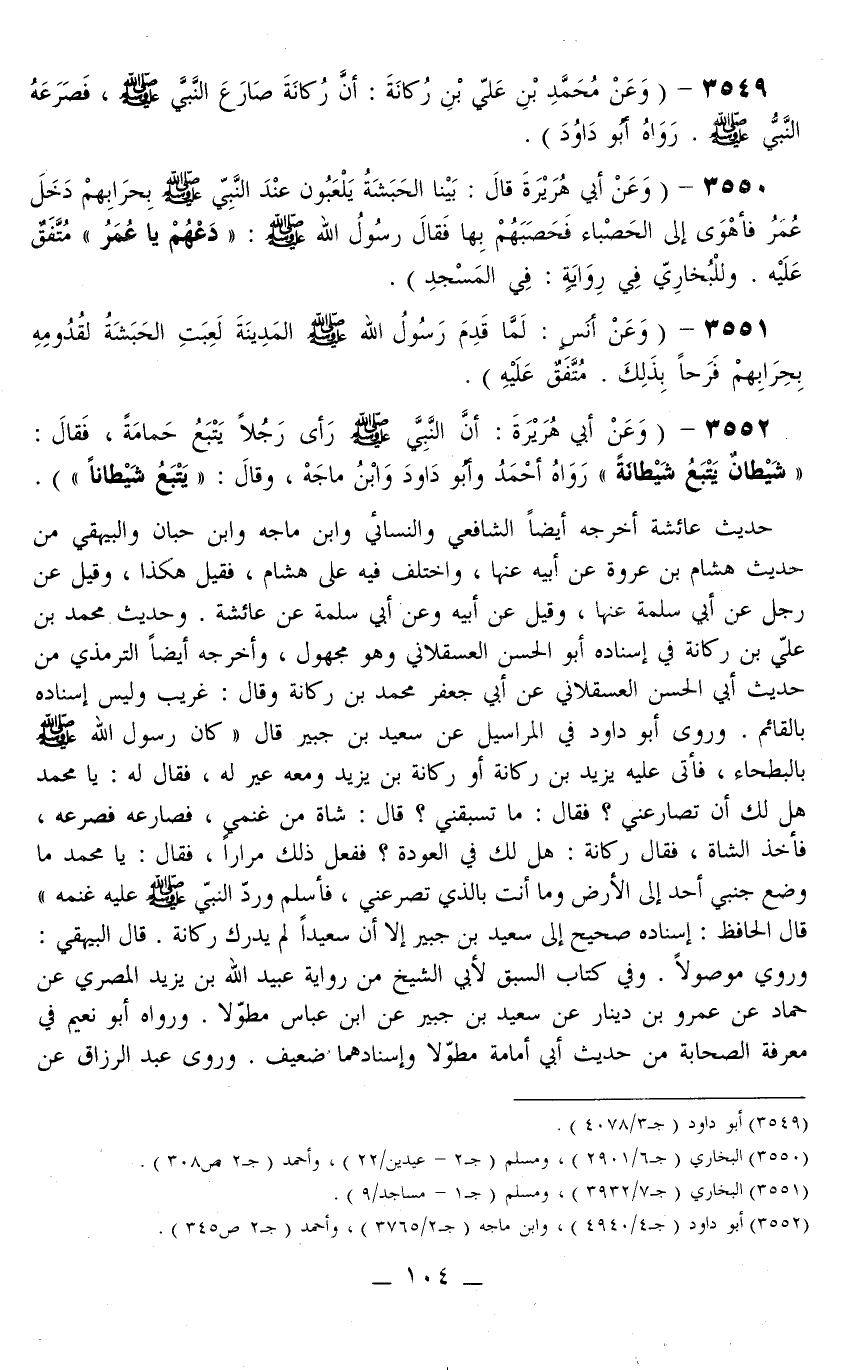 ٣٥٤٩ – ( وَعَنْ مُحَمَّدِ بْنِ عَليّ بْنِ رُكانَةَ : أنَّ رُكانَةَ صَارَعَ النَّبِيَّ ﷺ ، فَصَرَعَهُ
النَّبِيُّ ﷺ . رَوَاهُ أبُو دَاوُدَ ) .
٣٥٥٠ – ( وَعَنْ أبي هُرَيْرَةَ قالَ : بَيْنا الحَبَشَةُ يَلْعَبُون عنْدَ النَّبِيّ ﷺ بِحرَابِهمْ دَخَلَ
عُمَرُ فأهْوَى إلى الحَصْباء فَحَصَبَهُمْ بِها فَقالَ رسُولُ الله ﷺ : « دَعْهُمْ يا عُمَرُ » مُتَّفَقٌ
عَلَيْه . وللْبُخاريّ فِي رِوَايَةٍ : فِي المَسْجدِ ) .
٣٥٥١ – ( وَعَنْ أنَسٍ : لَمَّا قَدِمَ رَسُولُ الله ﷺ المَدِينَةَ لَعِبَتِ الحَبَشَةُ لقُدُومِهِ
بِحِرَابِهمْ فَرَحاً بِذَلِكَ . مُتَّفَقٌ عَلَيْهِ ) .
٣٥٥٢ – ( وَعَنْ أبي هُرَيْرَةَ : أنَّ النَّبِيَّ ﷺ رَأى رَجُلاً يَتْبَعُ حَمامَةً ، فَقالَ :
« شَيْطانٌ يَتْبَعُ شَيْطانَةً » رَوَاهُ أحْمَدُ وأبُو دَاودَ وَابْنُ ماجَهْ ، وقالَ : « يَتْبَعُ شَيْطاناً » ) .
حديث عائشة أخرجه أيضاً الشافعي والنسائي وابن ماجه وابن حبان والبيهقي من
حديث هشام بن عروة عن أبيه عنها ، واختلف فيه على هشام ، فقيل هكذا ، وقيل عن
رجل عن أبي سلمة عنها ، وقيل عن أبيه وعن أبي سلمة عن عائشة . وحديث محمد بن
عليّ بن ركانة في إسناده أبو الحسن العسقلاني وهو مجهول ، وأخرجه أيضاً الترمذي من
حديث أبي الحسن العسقلاني عن أبي جعفر محمد بن ركانة وقال : غريب وليس إسناده
بالقائم . وروى أبو داود في المراسيل عن سعيد بن جبير قال « كان رسول الله ﷺ
بالبطحاء ، فأتى عليه يزيد بن ركانة أو ركانة بن يزيد ومعه عير له ، فقال له : يا محمد
هل لك أن تصارعني ؟ فقال : ما تسبقني ؟ قال : شاة من غنمي ، فصارعه فصرعه ،
فأخذ الشاة ، فقال ركانة : هل لك في العودة ؟ ففعل ذلك مراراً ، فقال : يا محمد ما
وضع جنبي أحد إلى الأرض وما أنت بالذي تصرعني ، فأسلم وردّ النبيّ ﷺ عليه غنمه »
قال الحافظ : إسناده صحيح إلى سعيد بن جبير إلا أن سعيداً لم يدرك ركانة . قال البيهقي :
وروي موصولاً . وفي كتاب السبق لأبي الشيخ من رواية عبيد الله بن يزيد المصري عن
حماد عن عمرو بن دينار عن سعيد بن جبير عن ابن عباس مطوّلا . ورواه أبو نعيم في
معرفة الصحابة من حديث أبي أمامة مطوّلا وإسنادهما ضعيف . وروى عبد الرزاق عن
(٣٥٤٩) أبو داود ( جـ٤٠٧٨/٣ ) .
(٣٥٥٠) البخاري ( جـ٢٩٠١/٦ ) ، ومسلم ( جـ٢ – عيدين/٢٢ ) ، وأحمد ( جـ٢ ص٣٠٨ ) .
(٣٥٥١) البخاري ( جـ٣٩٣٢/٧ ) ، ومسلم ( جـ١ – مساجد/٩ ) .
(٣٥٥٢) أبو داود ( جـ٤٩٤٠/٤ ) ، وابن ماجه ( جـ٣٧٦٥/٢ ) ، وأحمد ( جـ٢ ص٣٤٥ ) .
– ١٠٤ –